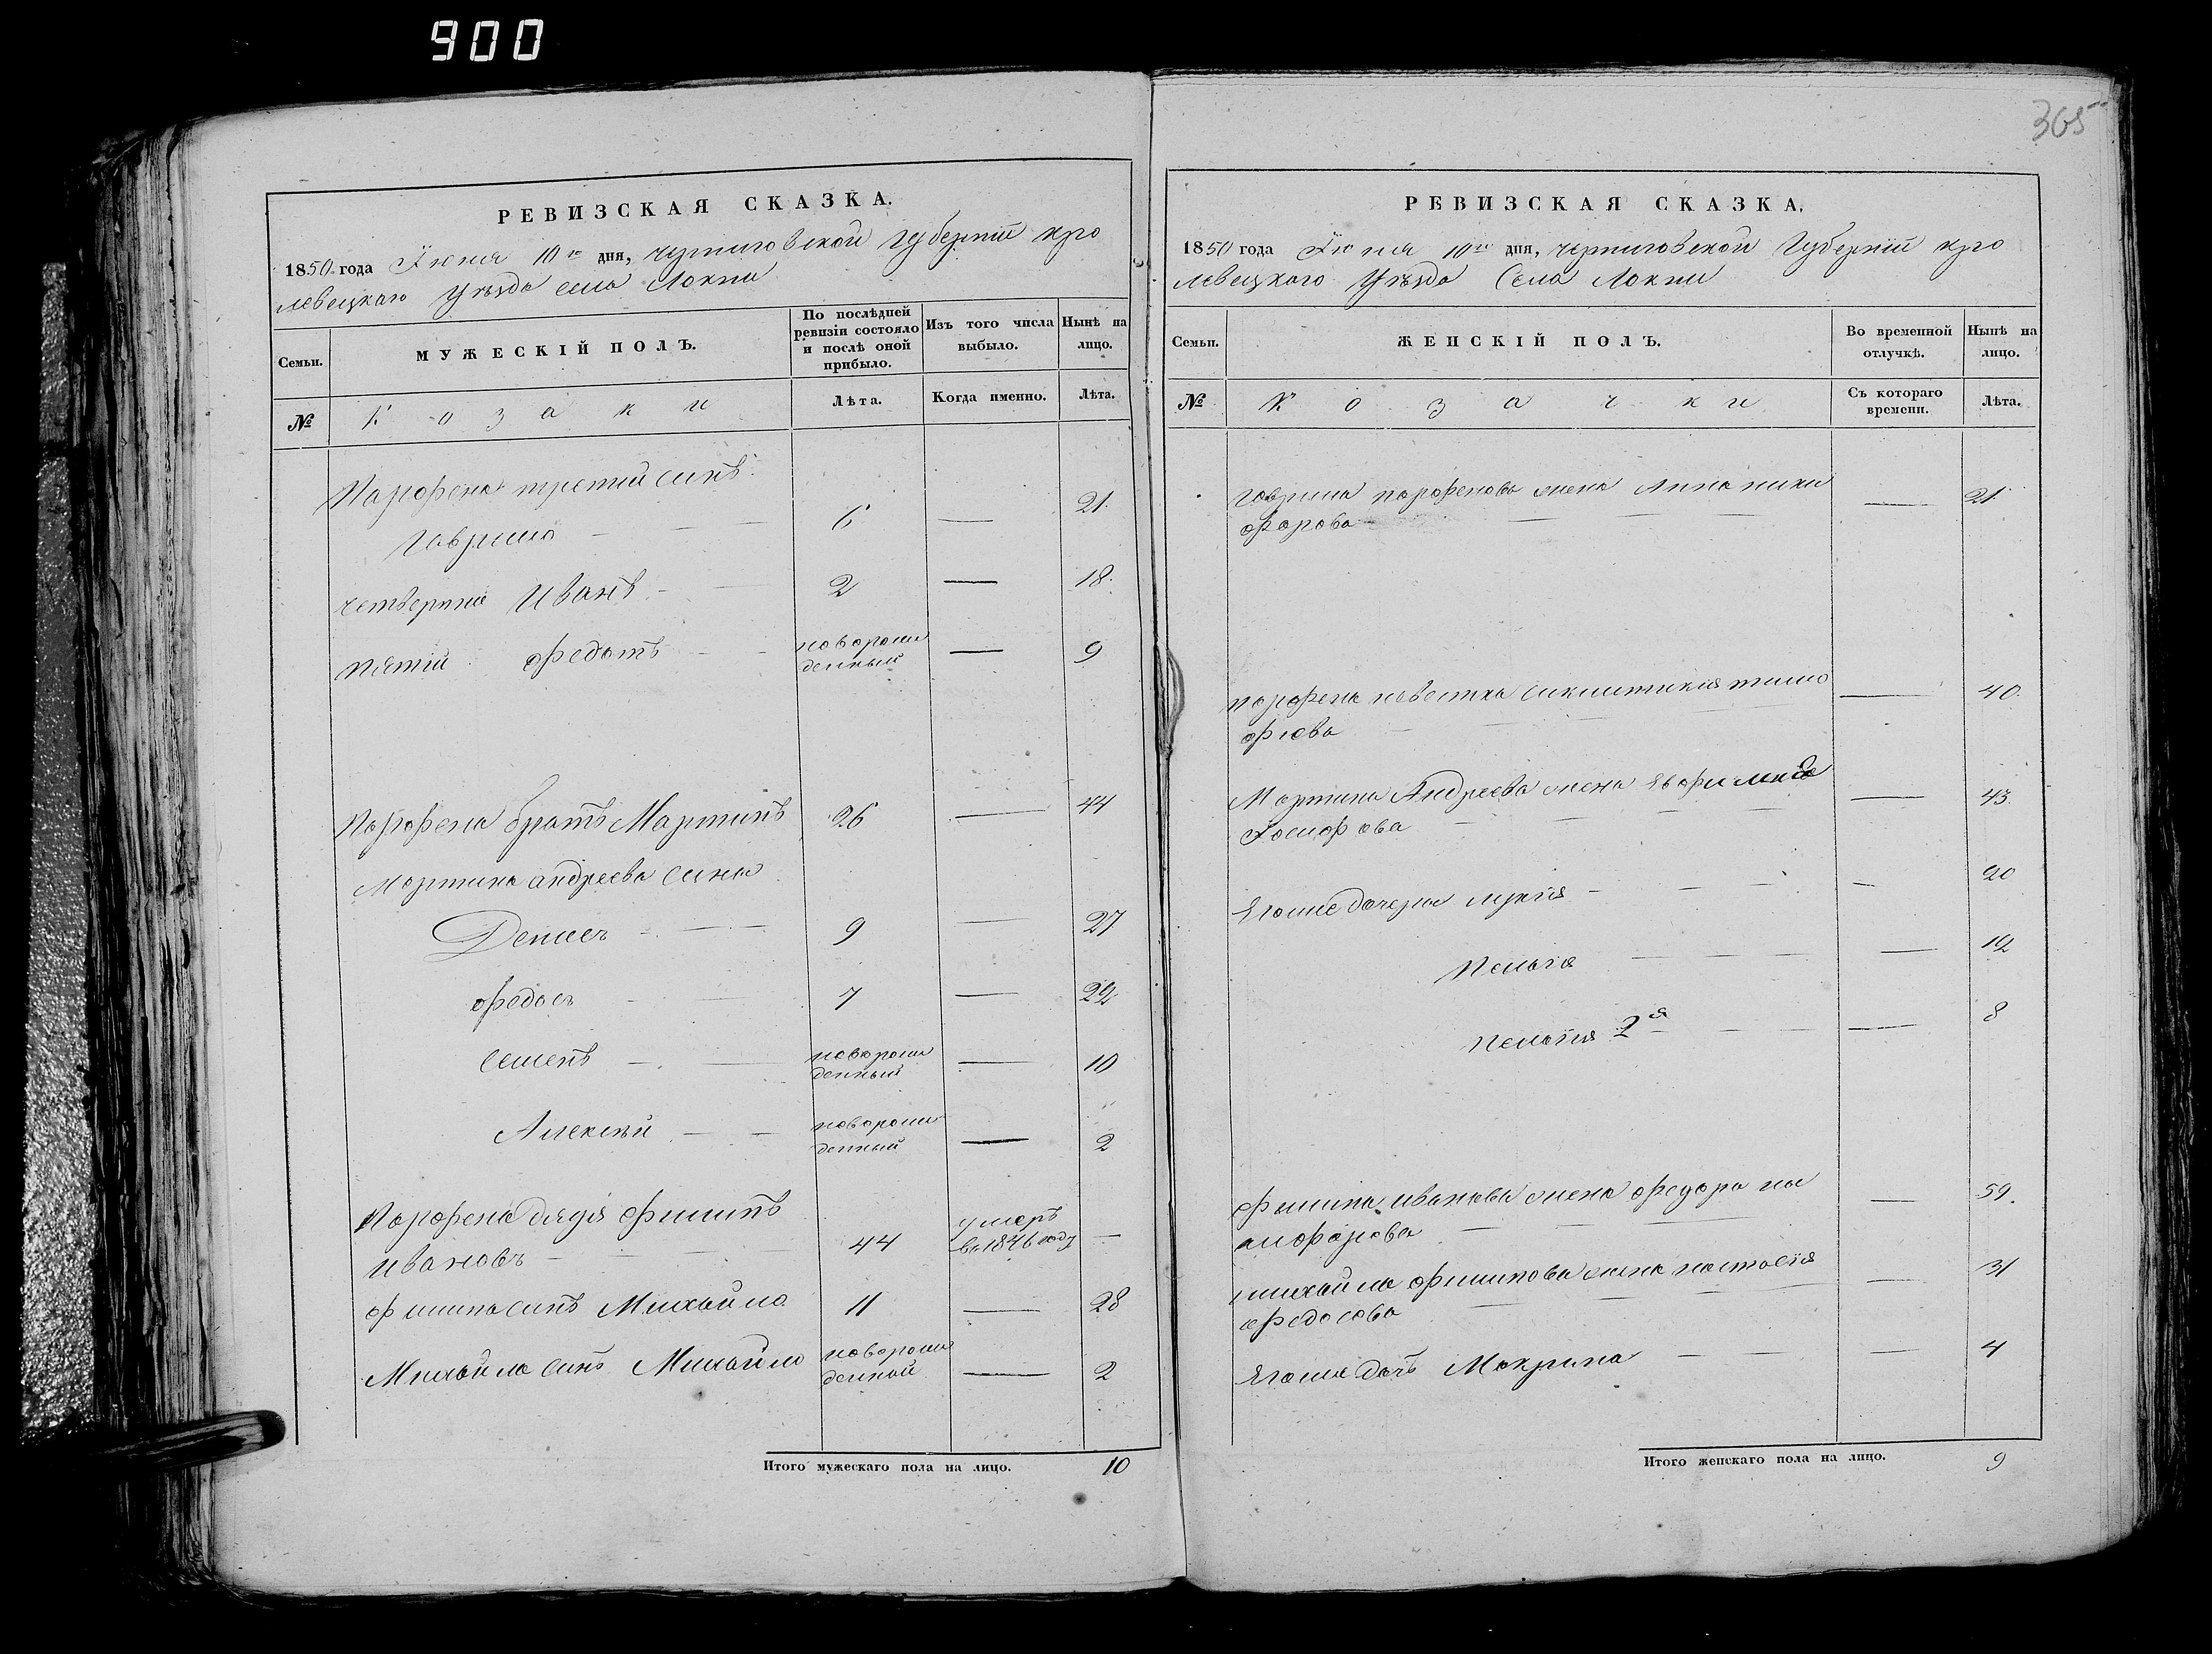 900
365
РЕВИЗСКАЯ СКАЗКА.
1850 года Іюня 10го дня, черниговской губерніи кро
левецкаго уѣзда села Локни
Семьи.
МУЖЕСКІЙ ПОЛЪ.
По послѣдней ревизіи состояло и послѣ оной прибыло.
Изъ того числа выбыло.
Нынѣ на лицо.
№
Козаки
Лѣта.
Когда именно.
Лѣта.
Парфена третій синъ
Гаврило 6 — 21.
четвертій Иванъ 2 — 18.
пятій федотъ новорож
денный — 9
Парфена братъ Мартинъ 26 — 44
Мартина андреева сини
Денисъ 9 — 27
федосъ 7 — 22
Семенъ новорож
денный — 10
Алексѣй новорож
денный — 2
Парфена дядя филипъ
Ивановъ 44 умеръ
въ 1846 году —
филипа синъ Михайло 11 — 28
Михайла синъ Михайло новорож
денной — 2
Итого мужескаго пола на лицо. 10
РЕВИЗСКАЯ СКАЗКА.
1850 года Іюня 10го дня, черниговской Губерніи кро
левецкаго Уѣзда Села Локни
Семьи.
ЖЕНСКІЙ ПОЛЪ.
Во временной отлучкѣ.
Нынѣ на лицо.
№
Козачки
Съ котораго времени.
Лѣта.
Гаврила парфенова жена Анна ники
форова — 21
парфена невестка тимо
фіева — 40.
Мартина Андреева жена Евфимия
Іосифова — 43.
Егоже дочери лукія — 20
Пелагія — 12
пелагія 2я — 8
филипа иванова жена федора
— 59.
михайла филипова жена настасія
федосова — 31
Егоже дочъ Макрина — 4
Итого женскаго пола на лицо. 9